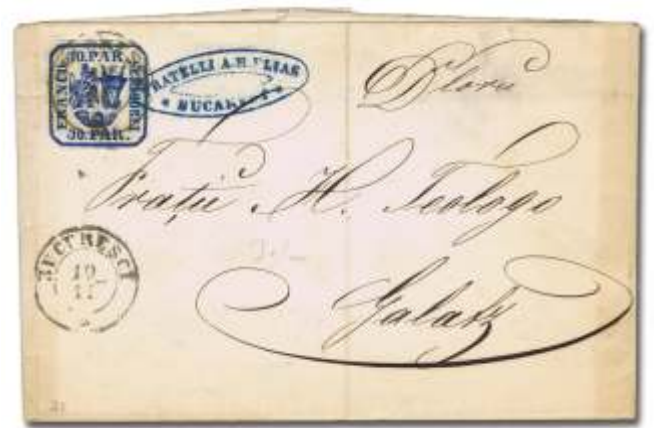 30. PAR.
FRANCO SCRISOREI
30. PAR.
FRATELLI A.H. ELIAS
* BUCAREST *
Dlorŭ
Frații H. Teologo
Galatz
BUCURESCI
19
11
21